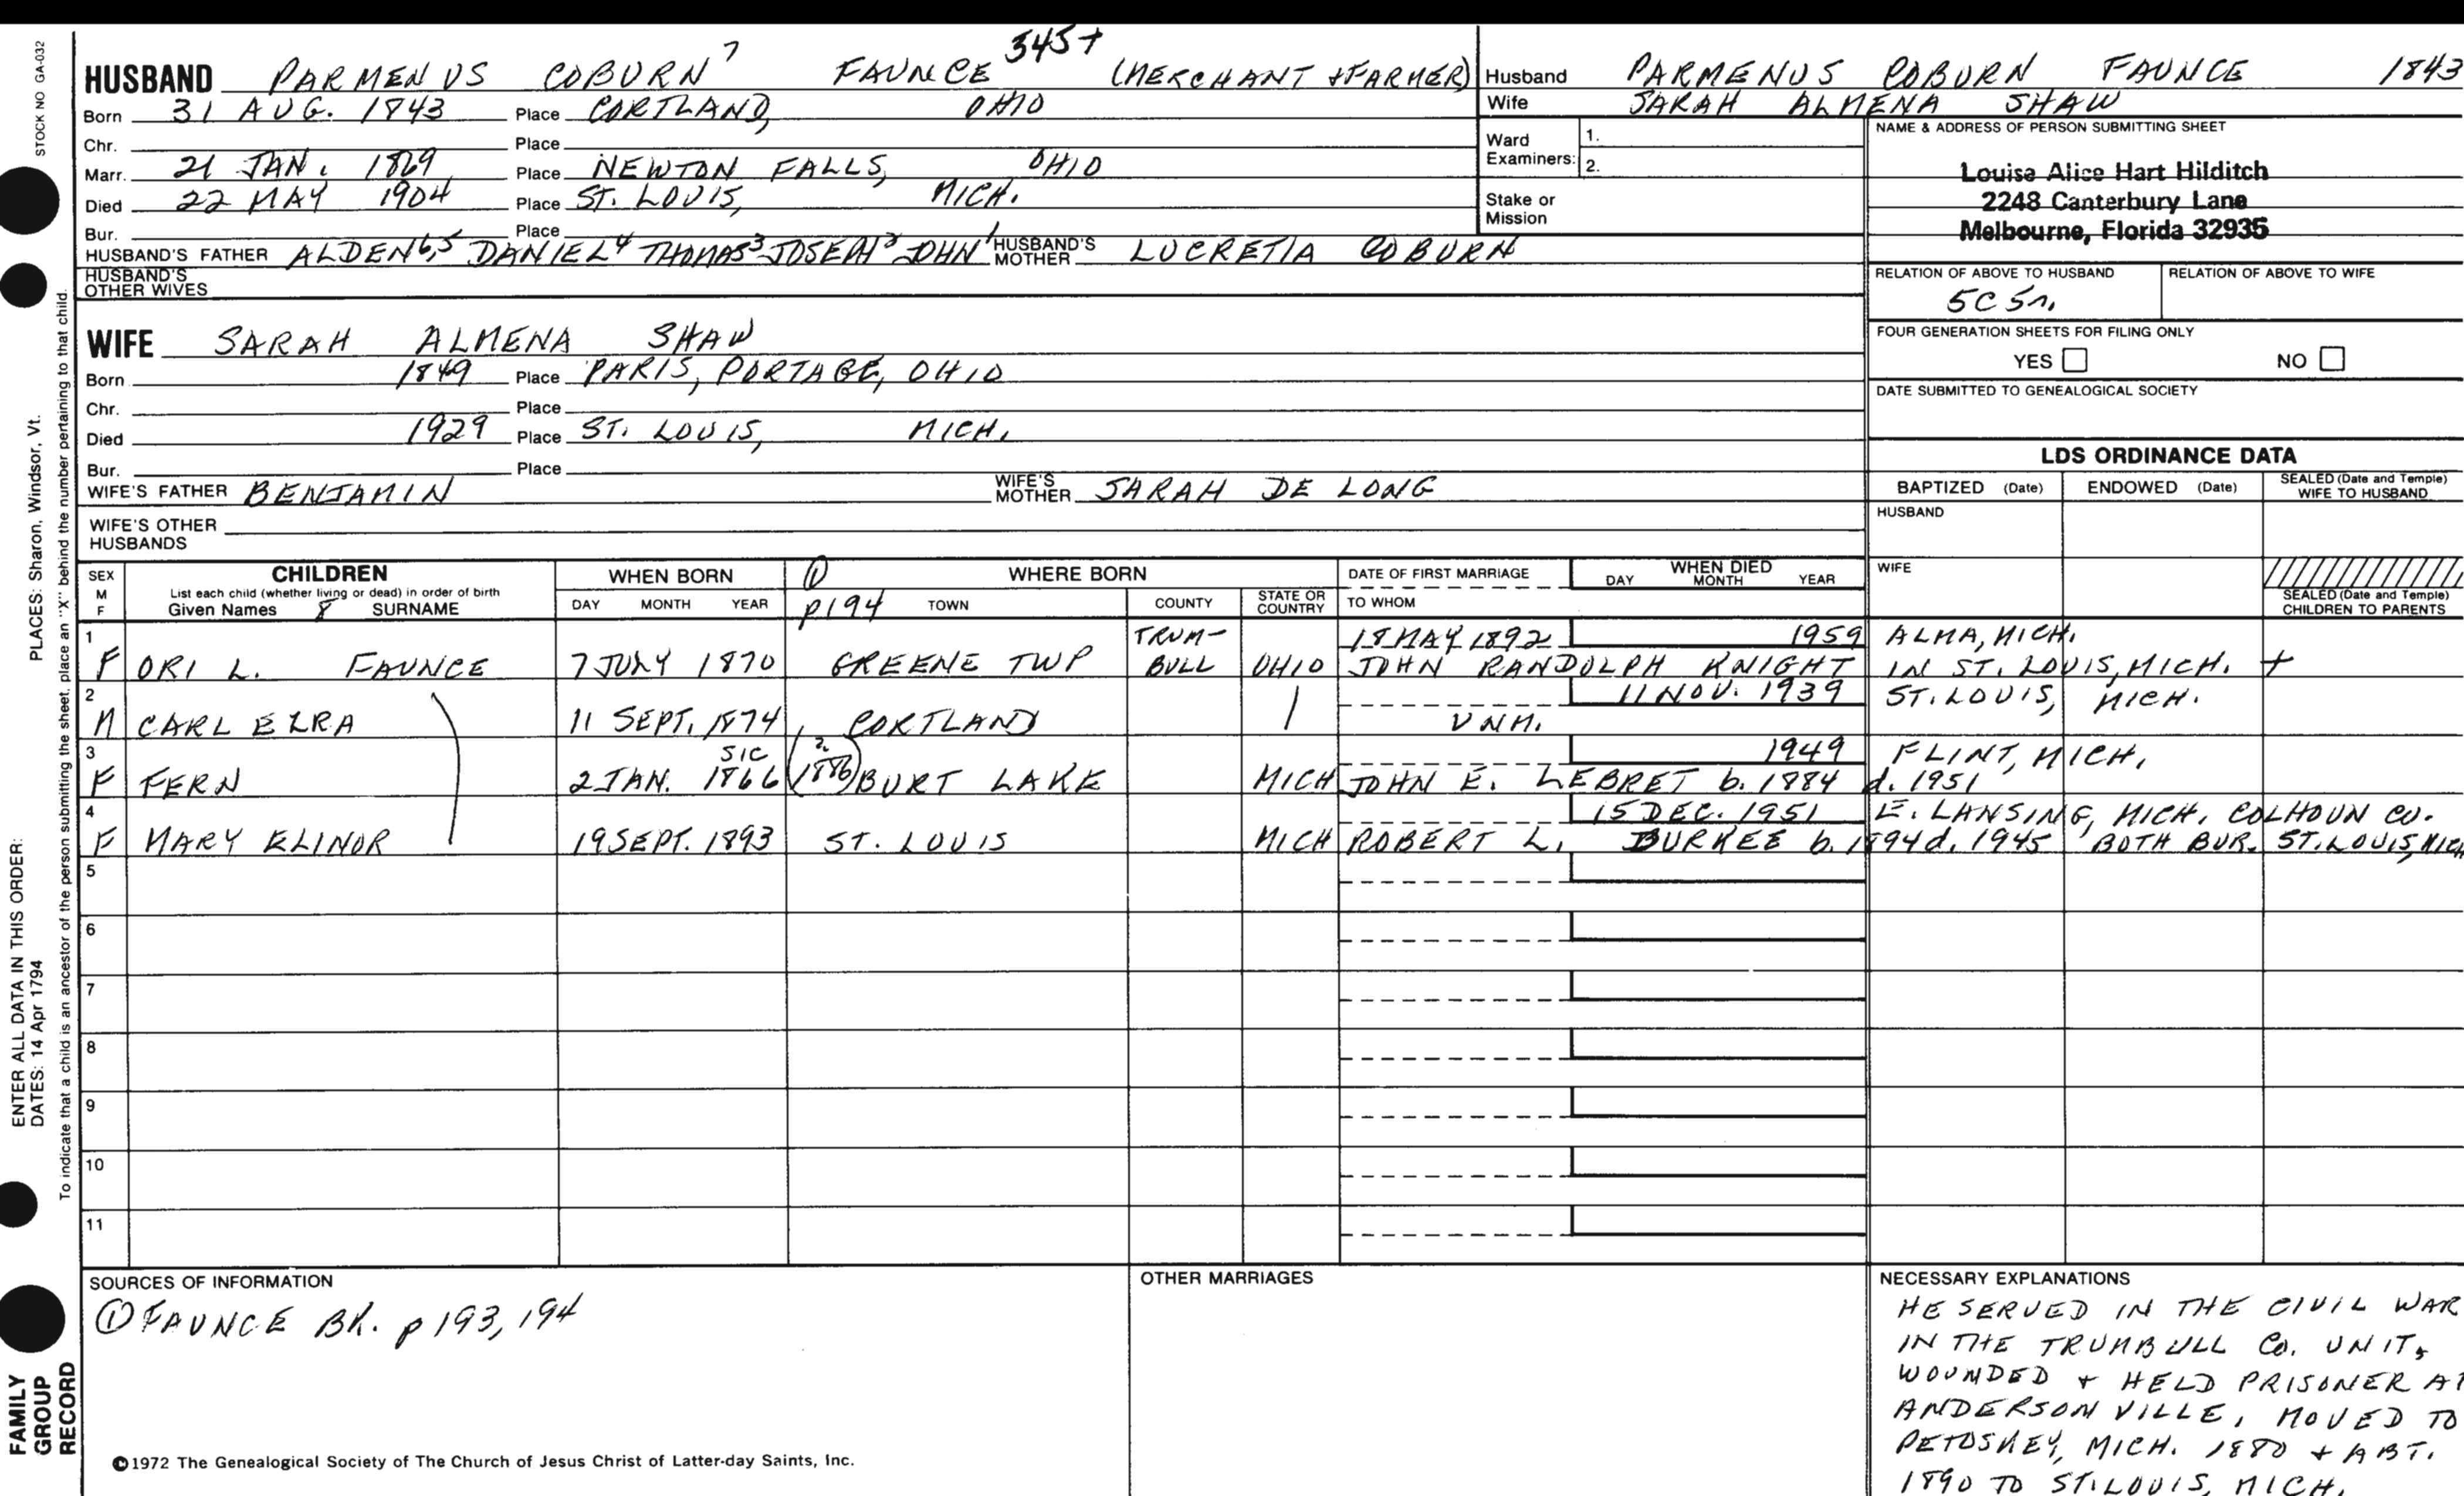 STOCK NO GA-032
PLACES: Sharon, Windsor, Vt.
ENTER ALL DATA IN THIS ORDER:
DATES: 14 Apr 1794
To indicate that a child is an ancestor of the person submitting the sheet, place an "X" behind the number pertaining to that child.
FAMILY
GROUP
RECORD
545+
HUSBAND PARMENUS COBURN 7 FAUNCE (MERCHANT + FARMER)
Born 31 AUG. 1843 Place CORTLAND, OHIO
Chr. Place
Marr. 21 JAN. 1869 Place NEWTON FALLS, OHIO
Died 22 MAY 1904 Place ST. LOUIS, MICH.
Bur. Place
HUSBAND'S FATHER ALDEN6,5 DANIEL4 THOMAS3 JOSEPH2 JOHN1 HUSBAND'S MOTHER LUCRETIA COBURN
HUSBAND'S OTHER WIVES
WIFE SARAH ALMENA SHAW
Born 1849 Place PARIS, PORTAGE, OHIO
Chr. Place
Died 1929 Place ST. LOUIS, MICH.
Bur. Place
WIFE'S FATHER BENJAMIN WIFE'S MOTHER SARAH DE LONG
WIFE'S OTHER HUSBANDS
Husband PARMENUS COBURN FAUNCE 1843
Wife SARAH ALMENA SHAW
Ward Examiners: 1.
2.
Stake or Mission
NAME & ADDRESS OF PERSON SUBMITTING SHEET
Louise Alice Hart Hilditch
2248 Canterbury Lane
Melbourne, Florida 32935
RELATION OF ABOVE TO HUSBAND RELATION OF ABOVE TO WIFE
5C 5r.
FOUR GENERATION SHEETS FOR FILING ONLY
YES NO
DATE SUBMITTED TO GENEALOGICAL SOCIETY
LDS ORDINANCE DATA
BAPTIZED (Date) ENDOWED (Date) SEALED (Date and Temple) WIFE TO HUSBAND
HUSBAND
WIFE
SEALED (Date and Temple) CHILDREN TO PARENTS
SEX M F CHILDREN WHEN BORN ① WHERE BORN DATE OF FIRST MARRIAGE WHEN DIED
List each child (whether living or dead) in order of birth
Given Names 8 SURNAME DAY MONTH YEAR p194 TOWN COUNTY STATE OR COUNTRY TO WHOM DAY MONTH YEAR
1 TRUM- 18 MAY 1892 1959 ALMA, MICH.
F ORI L. FAUNCE 7 JULY 1870 GREENE TWP BULL OHIO JOHN RANDOLPH KNIGHT IN ST. LOUIS, MICH. +
2 11 NOV. 1939 ST. LOUIS, MICH.
M CARL EZRA 11 SEPT. 1874 CORTLAND UNM.
3 SIC ?. 1949 FLINT, MICH.
F FERN 2 JAN. 1866 (1886) BURT LAKE MICH JOHN E. LEBRET b. 1884 d. 1951
4 15 DEC. 1951 E. LANSING, MICH. COLHOUN CO.
F MARY ELINOR 19 SEPT. 1893 ST. LOUIS MICH ROBERT L. BURKEE b. 1894 d. 1945 BOTH BUR. ST. LOUIS, MICH
5
6
7
8
9
10
11
SOURCES OF INFORMATION
① FAUNCE BK. p 193, 194
©1972 The Genealogical Society of The Church of Jesus Christ of Latter-day Saints, Inc.
OTHER MARRIAGES
NECESSARY EXPLANATIONS
HE SERVED IN THE CIVIL WAR
IN THE TRUMBULL CO. UNIT,
WOUNDED + HELD PRISONER AT
ANDERSONVILLE, MOVED TO
PETOSKEY, MICH. 1880 + ABT.
1890 TO ST. LOUIS, MICH.